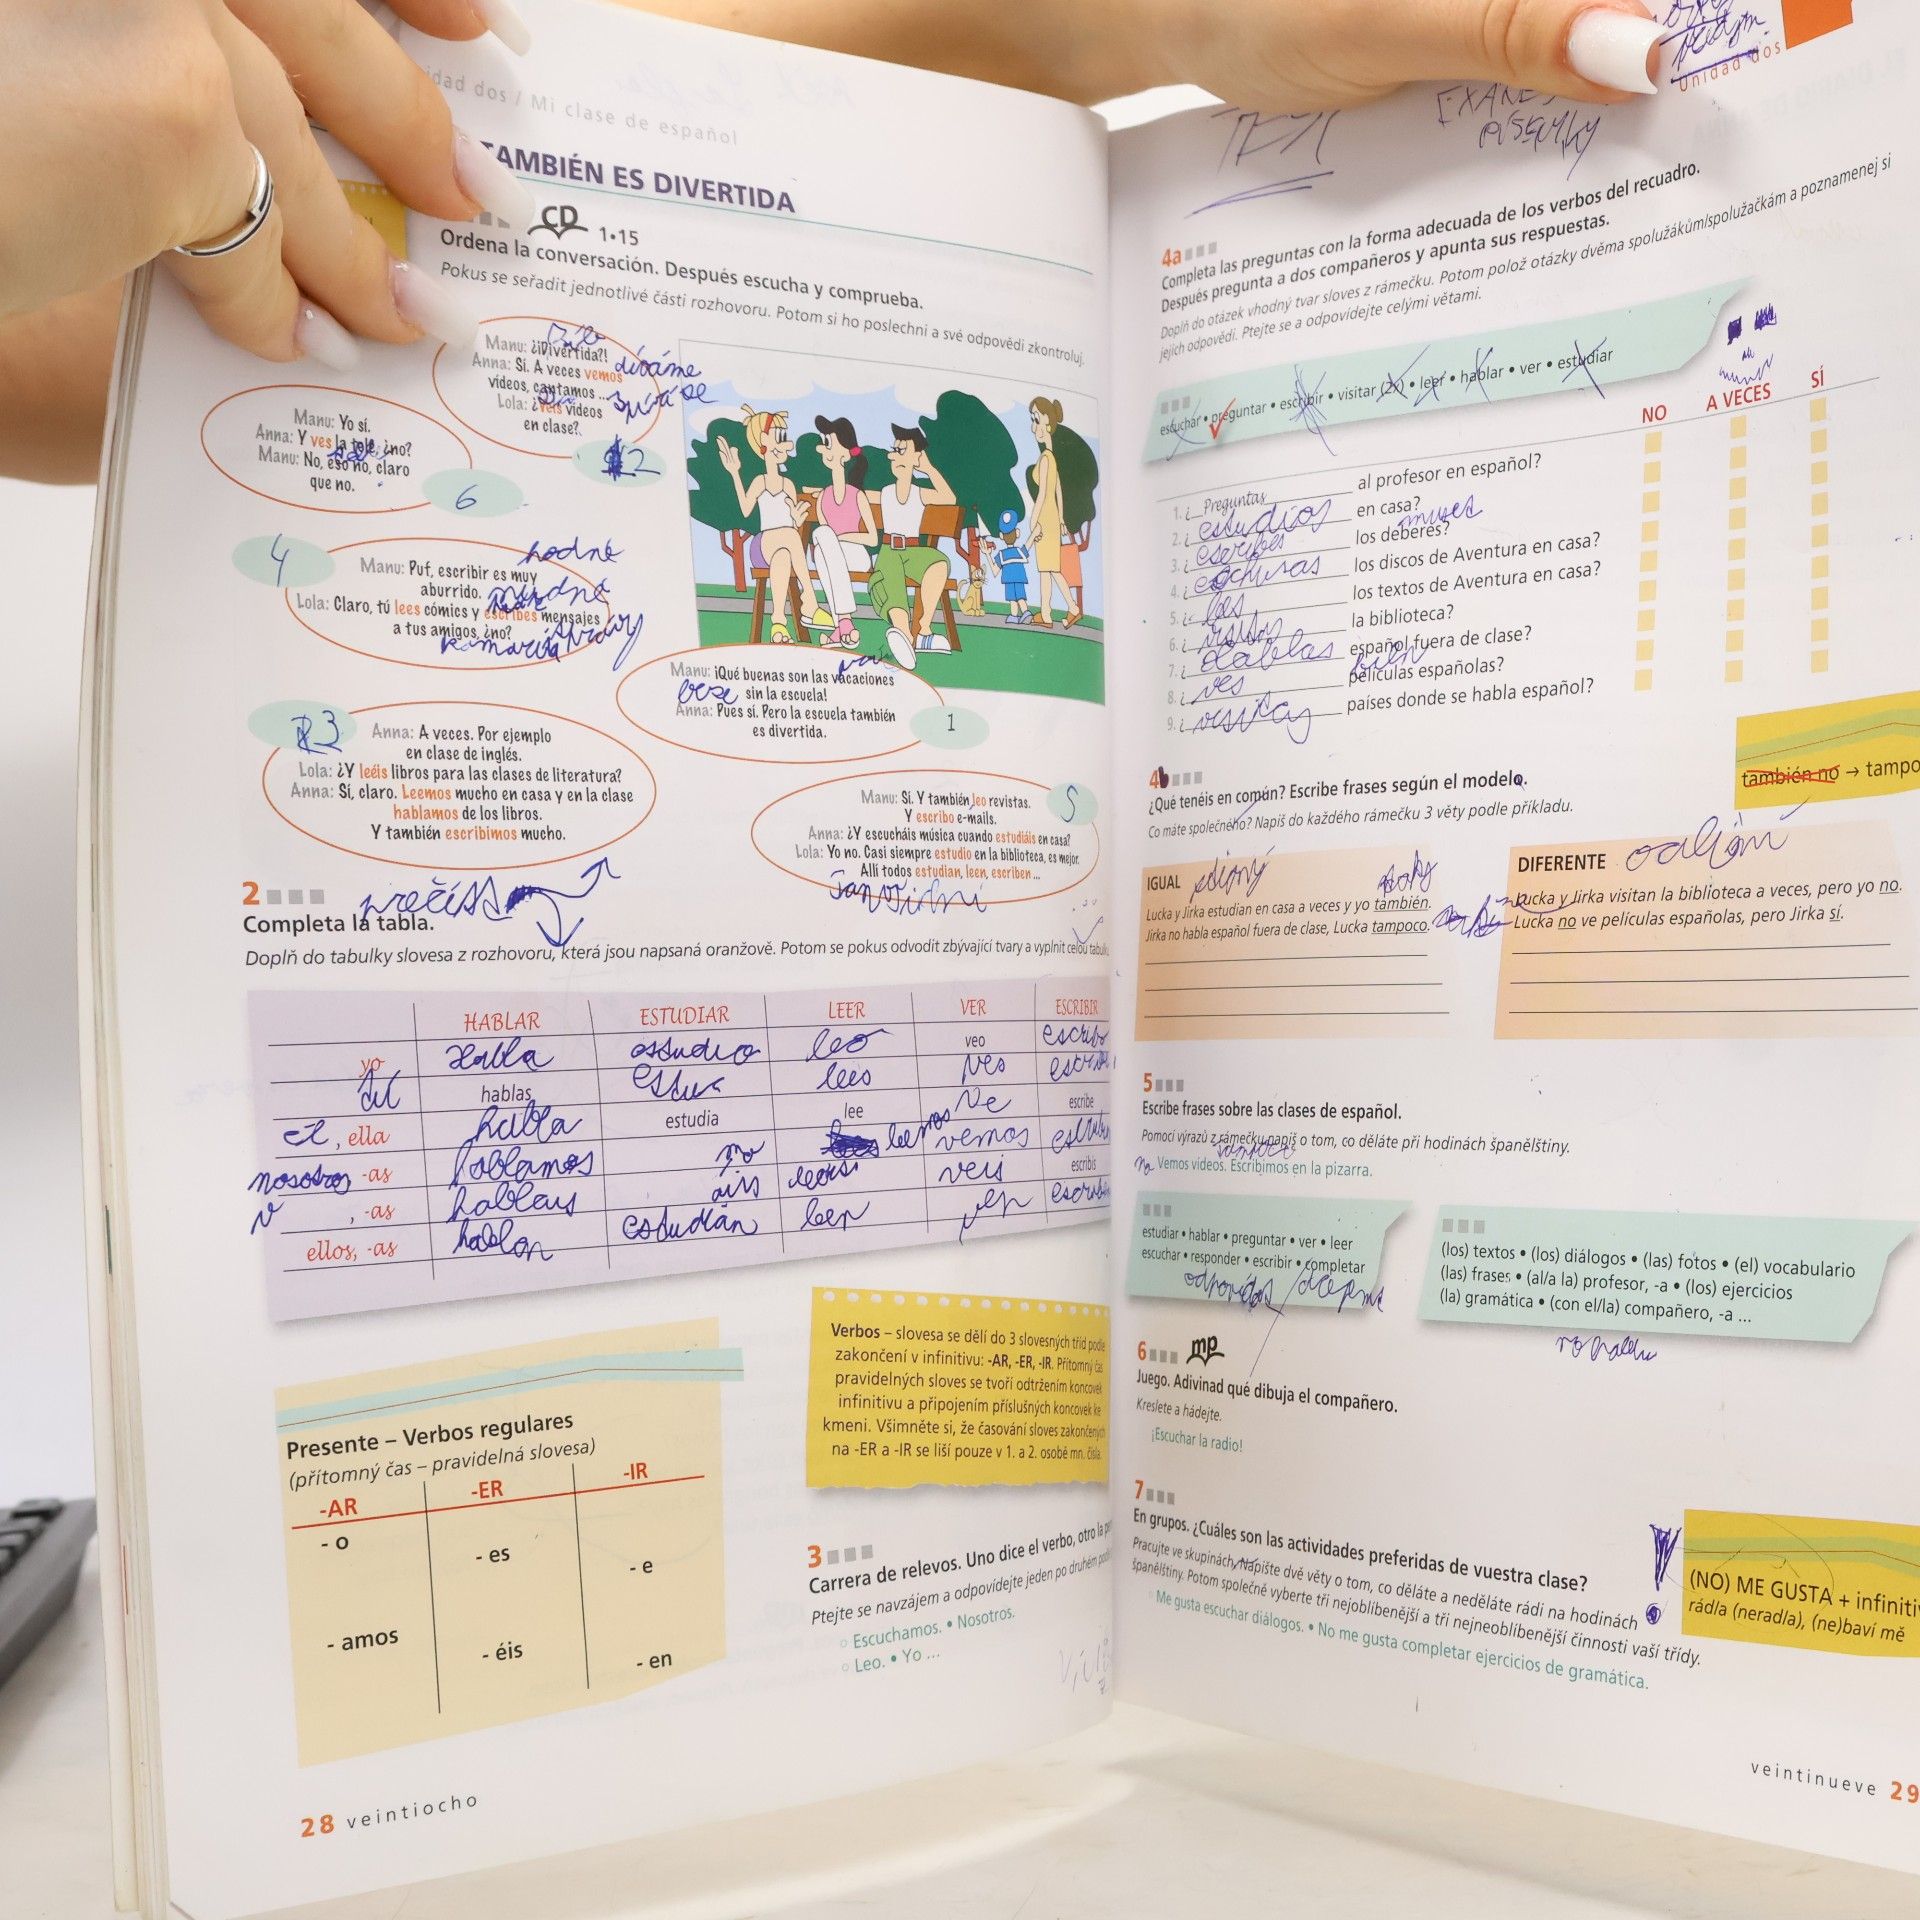 idad dos / Mi clase de español
TAMBIÉN ES DIVERTIDA
CD 1•15
Ordena la conversación. Después escucha y comprueba.
Pokus se seřadit jednotlivé části rozhovoru. Potom si ho poslechni a své odpovědi zkontroluj.
Manu: ¿¡Divertida?!
Anna: Sí. A veces vemos
vídeos, cantamos ...
Lola: ¿Veis vídeos
en clase?
díváme
2
Manu: Yo sí.
Anna: Y ves la tele, ¿no?
Manu: No, eso no, claro
que no.
6
4
hodně
Manu: Puf, escribir es muy
aburrido.
Lola: Claro, tú lees cómics y escribes mensajes
a tus amigos, ¿no?
Manu: ¡Qué buenas son las vacaciones
sin la escuela!
Anna: Pues sí. Pero la escuela también
es divertida.
1
3
Anna: A veces. Por ejemplo
en clase de inglés.
Lola: ¿Y leéis libros para las clases de literatura?
Anna: Sí, claro. Leemos mucho en casa y en la clase
hablamos de los libros.
Y también escribimos mucho.
Manu: Sí. Y también leo revistas.
Y escribo e-mails.
Anna: ¿Y escucháis música cuando estudiáis en casa?
Lola: Yo no. Casi siempre estudio en la biblioteca, es mejor.
Allí todos estudian, leen, escriben ...
5
2
Completa la tabla.
Doplň do tabulky slovesa z rozhovoru, která jsou napsaná oranžově. Potom se pokus odvodit zbývající tvary a vyplnit celou tabulk
HABLAR ESTUDIAR LEER VER ESCRIBIR
yo estudio leo veo escribo
hablas lees ves
, ella habla estudia lee ve escribe
-as hablamos leemos vemos
, -as veis escribis
ellos, -as hablan estudián leen
Presente – Verbos regulares
(přítomný čas – pravidelná slovesa)
-AR -ER -IR
- o
- es
- e
- amos
- éis
- en
Verbos – slovesa se dělí do 3 slovesných tříd podle
zakončení v infinitivu: -AR, -ER, -IR. Přítomný čas
pravidelných sloves se tvoří odtržením koncovek
infinitivu a připojením příslušných koncovek ke
kmeni. Všimněte si, že časování sloves zakončených
na -ER a -IR se liší pouze v 1. a 2. osobě mn. čísla.
3
Carrera de relevos. Uno dice el verbo, otro la
Ptejte se navzájem a odpovídejte jeden po druhém
Escuchamos. • Nosotros.
Leo. • Yo ...
28 veintiocho
Unidad dos
4a
Completa las preguntas con la forma adecuada de los verbos del recuadro.
Después pregunta a dos compañeros y apunta sus respuestas.
Doplň do otázek vhodný tvar sloves z rámečku. Potom polož otázky dvěma spolužákům/spolužačkám a poznamenej si
jejich odpovědi. Ptejte se a odpovídejte celými větami.
escuchar • preguntar • escribir • visitar (2x) • leer • hablar • ver • estudiar
NO A VECES SÍ
1. ¿ Preguntas al profesor en español?
2. ¿ estudios en casa?
3. ¿ escribes los deberes?
4. ¿ los discos de Aventura en casa?
5. ¿ los textos de Aventura en casa?
6. ¿ la biblioteca?
7. ¿ español fuera de clase?
8. ¿ ves películas españolas?
9. ¿ países donde se habla español?
también no → tampo
4b
¿Qué tenéis en común? Escribe frases según el modelo.
Co máte společného? Napiš do každého rámečku 3 věty podle příkladu.
IGUAL
Lucka y Jirka estudian en casa a veces y yo también.
Jirka no habla español fuera de clase, Lucka tampoco.
DIFERENTE
Lucka y Jirka visitan la biblioteca a veces, pero yo no.
Lucka no ve películas españolas, pero Jirka sí.
5
Escribe frases sobre las clases de español.
Pomocí výrazů z rámečku napiš o tom, co děláte při hodinách španělštiny.
Vemos vídeos. Escribimos en la pizarra.
estudiar • hablar • preguntar • ver • leer
escuchar • responder • escribir • completar
(los) textos • (los) diálogos • (las) fotos • (el) vocabulario
(las) frases • (al/a la) profesor, -a • (los) ejercicios
(la) gramática • (con el/la) compañero, -a ...
6 mp
Juego. Adivinad qué dibuja el compañero.
Kreslete a hádejte.
¡Escuchar la radio!
7
En grupos. ¿Cuáles son las actividades preferidas de vuestra clase?
Pracujte ve skupinách. Napište dvě věty o tom, co děláte a neděláte rádi na hodinách
španělštiny. Potom společně vyberte tři nejoblíbenější a tři nejneoblíbenější činnosti vaší třídy.
Me gusta escuchar diálogos. • No me gusta completar ejercicios de gramática.
(NO) ME GUSTA + infiniti
rád/a (nerad/a), (ne)baví mě
veintinueve 29